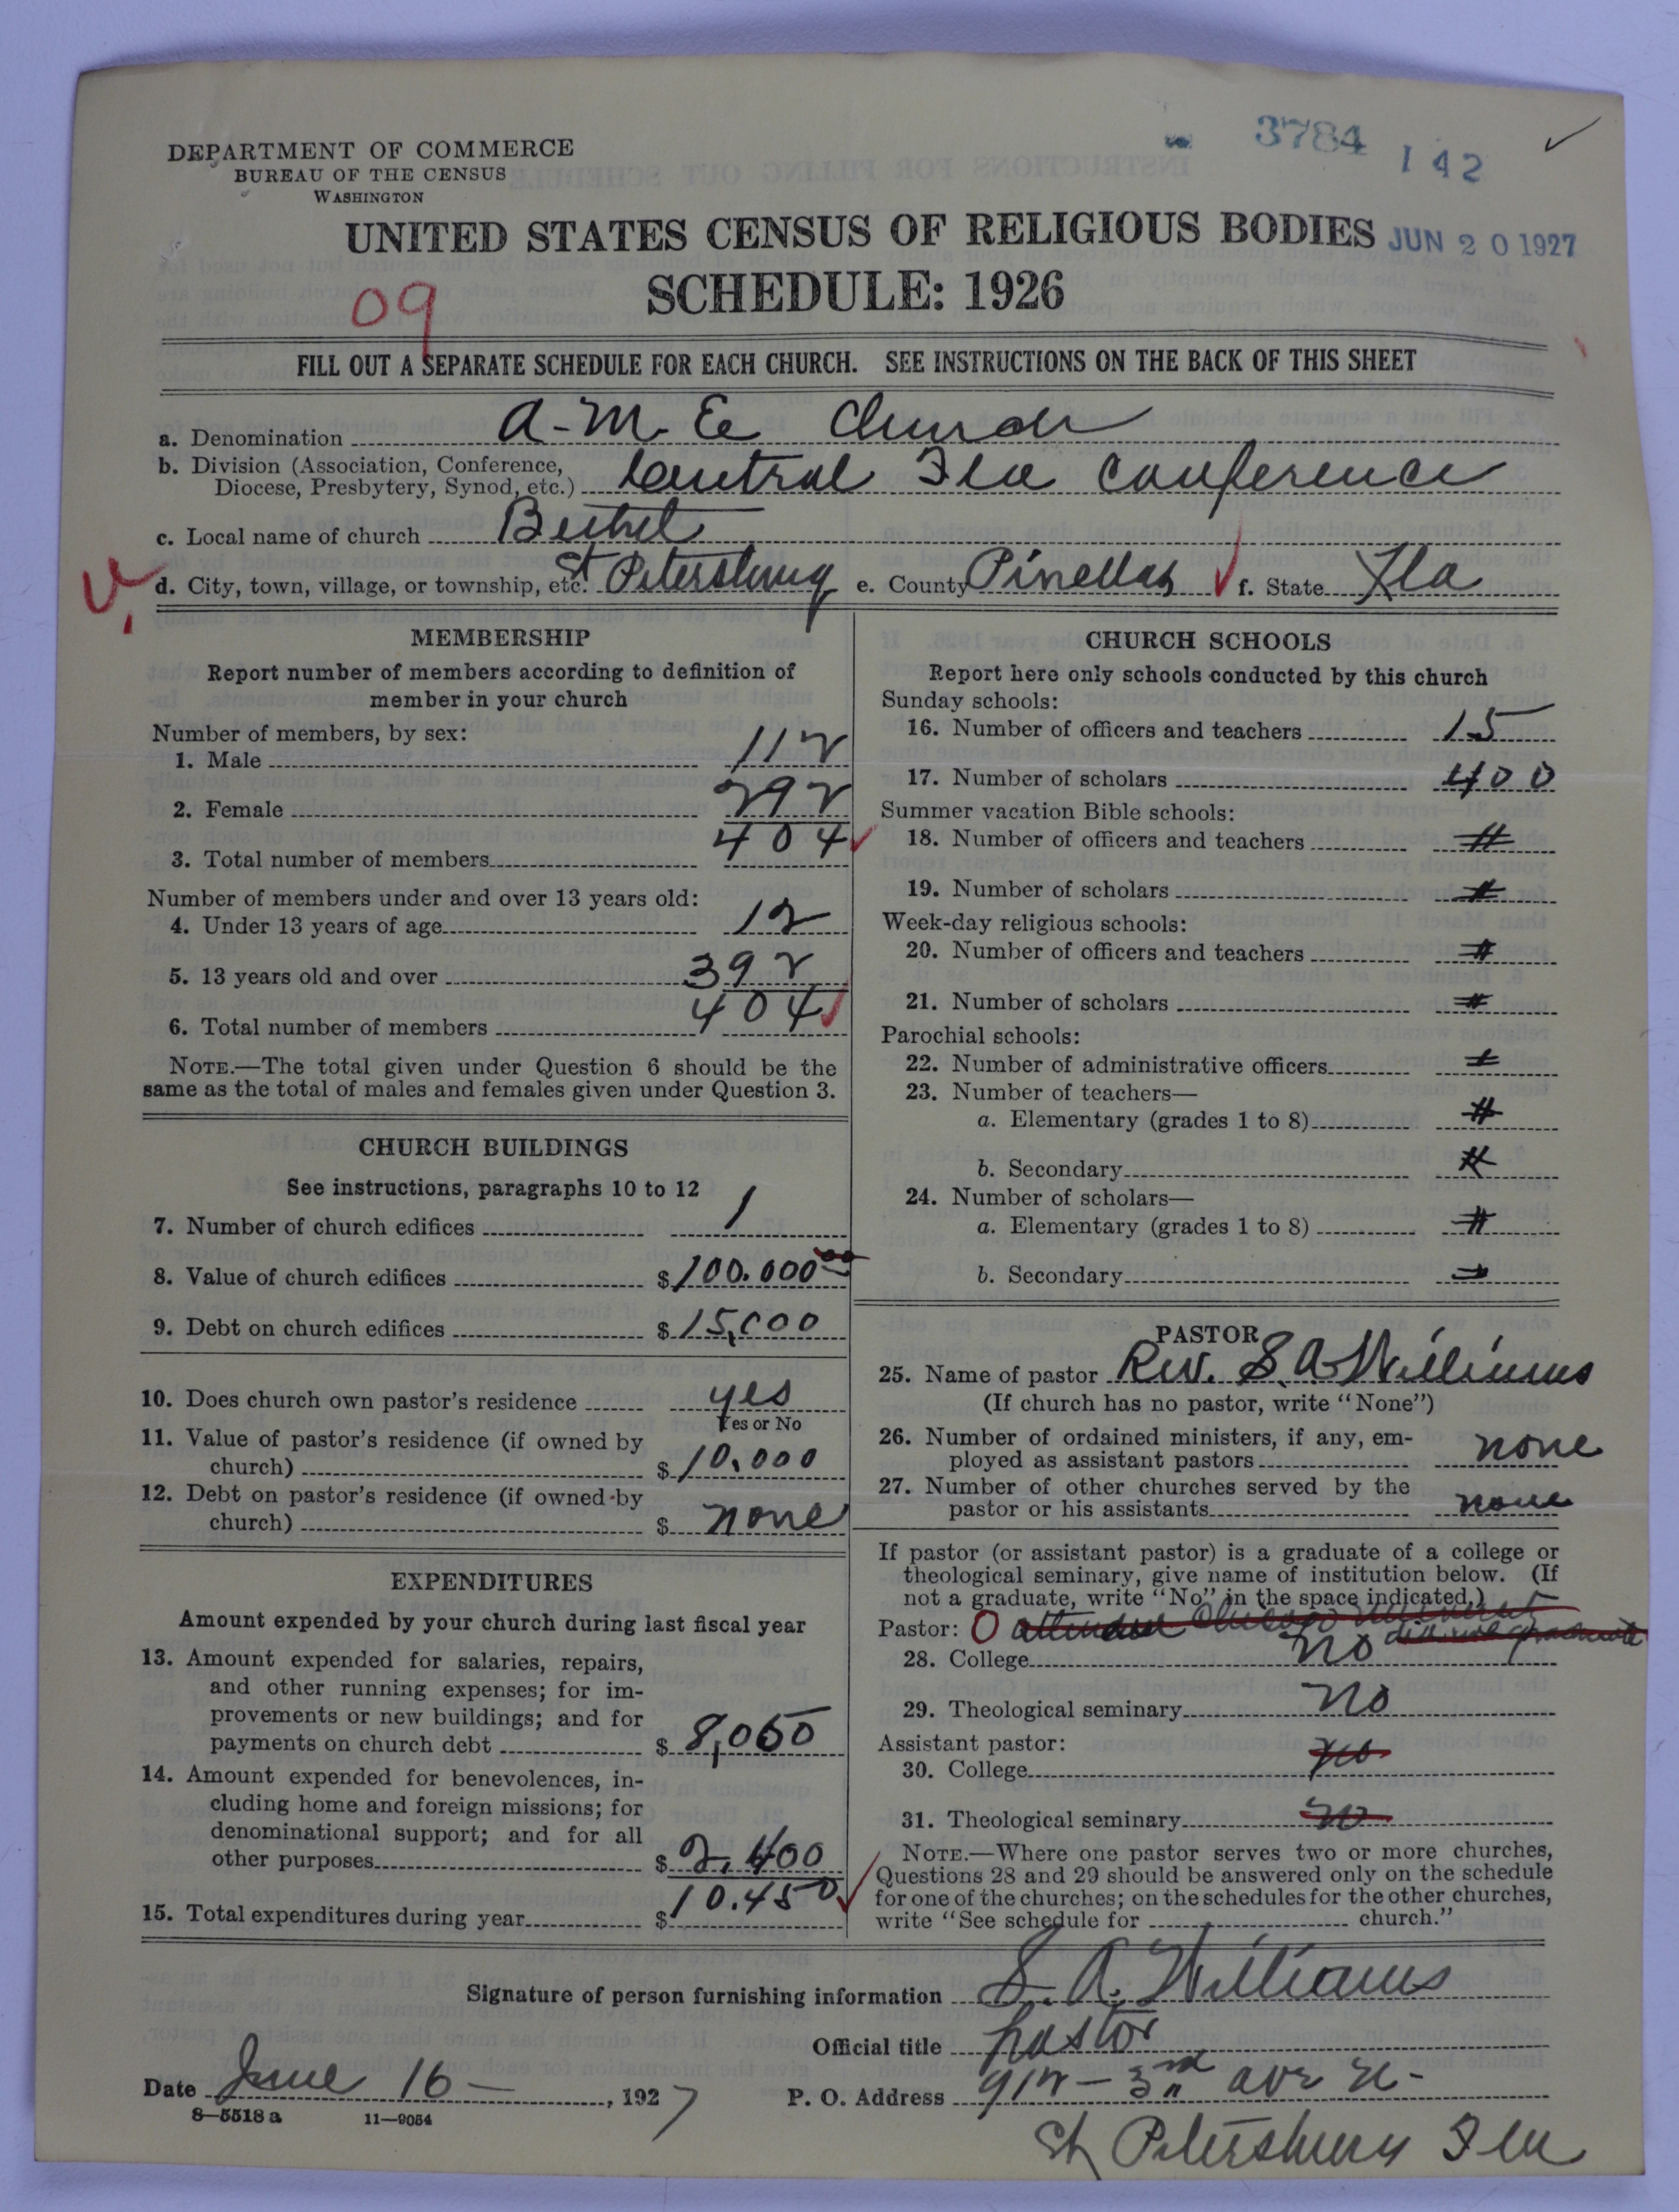 3784 142 ✓
DEPARTMENT OF COMMERCE
BUREAU OF THE CENSUS
WASHINGTON
UNITED STATES CENSUS OF RELIGIOUS BODIES JUN 20 1927
SCHEDULE: 1926
09
FILL OUT A SEPARATE SCHEDULE FOR EACH CHURCH. SEE INSTRUCTIONS ON THE BACK OF THIS SHEET
a. Denomination A. M. E. Church
b. Division (Association, Conference,
Diocese, Presbytery, Synod, etc.) Central Fla Conference
c. Local name of church Bethel
d. City, town, village, or township, etc. St Petersburg e. County Pinellas ✓ f. State Fla
MEMBERSHIP
Report number of members according to definition of
member in your church
Number of members, by sex:
1. Male 112
2. Female 292
3. Total number of members 404 ✓
Number of members under and over 13 years old:
4. Under 13 years of age 12
5. 13 years old and over 392
6. Total number of members 404 ✓
NOTE.—The total given under Question 6 should be the
same as the total of males and females given under Question 3.
CHURCH BUILDINGS
See instructions, paragraphs 10 to 12
7. Number of church edifices 1
8. Value of church edifices $ 100.000 00
9. Debt on church edifices $ 15,000
10. Does church own pastor's residence yes
Yes or No
11. Value of pastor's residence (if owned by
church) $ 10.000
12. Debt on pastor's residence (if owned by
church) $ none
EXPENDITURES
Amount expended by your church during last fiscal year
13. Amount expended for salaries, repairs,
and other running expenses; for im-
provements or new buildings; and for
payments on church debt $ 8,050
14. Amount expended for benevolences, in-
cluding home and foreign missions; for
denominational support; and for all
other purposes $ 2,400
15. Total expenditures during year $ 10.450 ✓
CHURCH SCHOOLS
Report here only schools conducted by this church
Sunday schools:
16. Number of officers and teachers 15
17. Number of scholars 400
Summer vacation Bible schools:
18. Number of officers and teachers
19. Number of scholars
Week-day religious schools:
20. Number of officers and teachers
21. Number of scholars
Parochial schools:
22. Number of administrative officers
23. Number of teachers—
a. Elementary (grades 1 to 8)
b. Secondary
24. Number of scholars—
a. Elementary (grades 1 to 8)
b. Secondary
PASTOR
25. Name of pastor Rev. S. A. Williams
(If church has no pastor, write "None")
26. Number of ordained ministers, if any, em-
ployed as assistant pastors none
27. Number of other churches served by the
pastor or his assistants none
If pastor (or assistant pastor) is a graduate of a college or
theological seminary, give name of institution below. (If
not a graduate, write "No" in the space indicated.)
Pastor: 0 attended Chicago University
did not graduate
28. College No
29. Theological seminary No
Assistant pastor:
30. College no
31. Theological seminary no
NOTE.—Where one pastor serves two or more churches,
Questions 28 and 29 should be answered only on the schedule
for one of the churches; on the schedules for the other churches,
write "See schedule for church."
Signature of person furnishing information S. A. Williams
Official title pastor
Date June 16 , 1927 P. O. Address 912 - 3rd ave n.
8—5518 a 11—9054
St Petersburg Fla